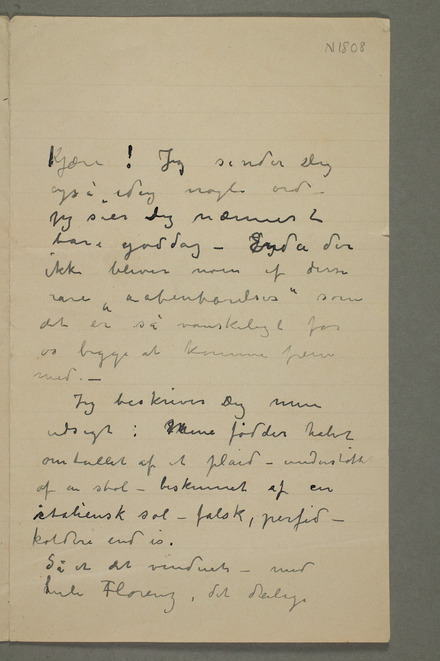 N 1808
Kjære! Jeg sender Dig
også idag nogle ord –
jeg sier Dig nærmest
bare goddag – Endda der
ikke bliver noen af disse
rare „aabenbarelser" som
det er så vanskeligt for
os begge at komme frem
med. –
Jeg beskriver Dig min
udsigt: Mine fødder halvt
omhullet af et plaid – understøttet
af en stol – beskinnet af en
italiensk sol – falsk, perfid –
koldere end is.
Så er det vinduet – med
hele Florenz, det deilige